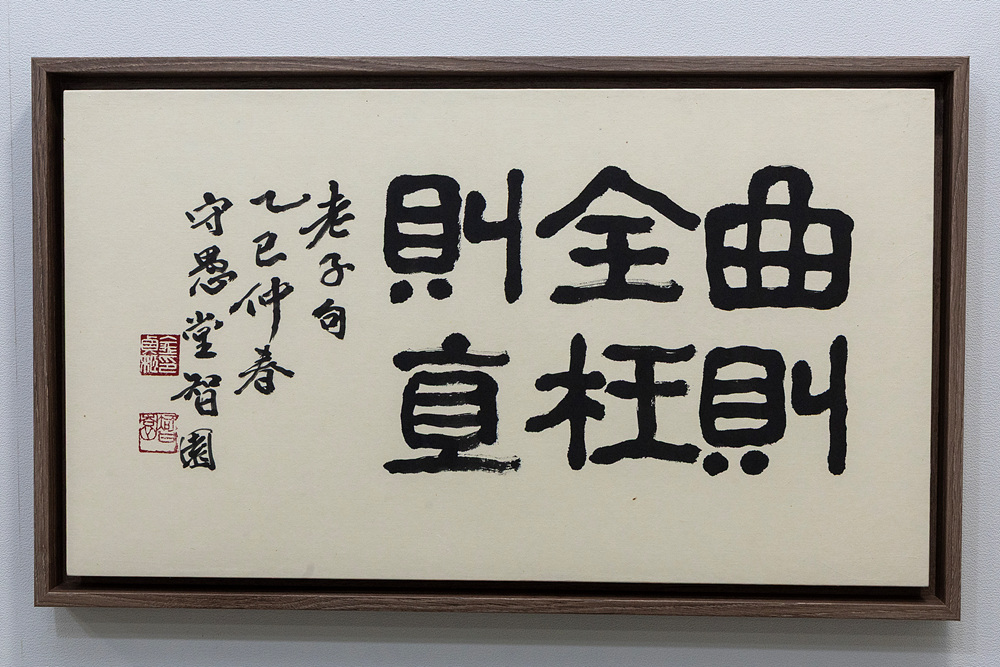 曲則
全枉
則直
老子句
乙巳仲春
守愚堂智園